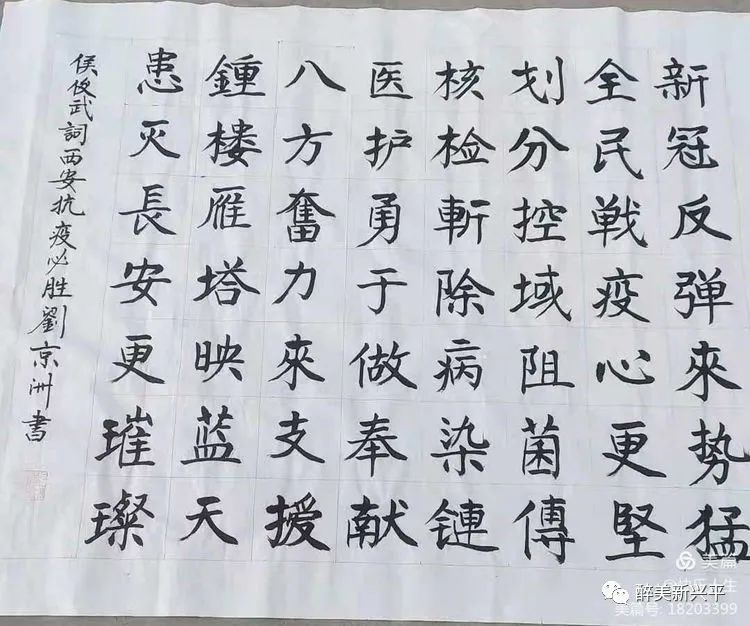 新冠反弹來势猛
全民戦疫心更堅
划分控域阻菌傳
核检斬除病染鏈
医护勇于做奉献
八方奮力來支援
鍾楼雁塔映蓝天
患灭長安更璀璨
侯俊武詞西安抗疫必胜劉京洲書
美篇
醉美新兴平
美篇号: 18203399